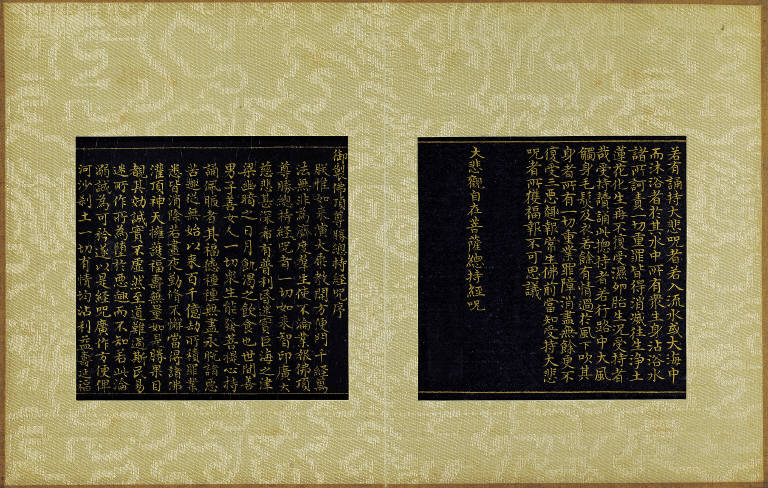 若有誦持大悲呪者若入流水或大海中
而沐浴者於其水中所有眾生身沾浴水
諸所訶責一切重罪皆得消滅往生淨土
蓮花化生再不復受濕卵胎生况受持者
哉受持讀誦此摠持者若行路中大風
觸身毛髮及衣若餘有情過於風下吹其
身者所有一切重業罪障消盡無餘更不
復受三惡趣報常生佛前當知受持大悲
呪者所獲福報不可思議
大悲觀自在菩薩總持經呪
御製佛頂尊勝總持經呪序
朕惟如來演大乘教開方便門千經萬
法無非為濟度羣生使不淪業報佛頂
尊勝總持經呪者一切如來智印廣大
慈悲甚深希有普利冥迷實巨海之津
梁幽暗之日月飢渴之飲食也世間善
男子善女人一切眾生能發菩提心持
誦佩服者其福德種種無盡永脫諸惡
苦趣從無始以來百千億劫所積罪業
悉皆消除若晝夜勤脩不懈當得諸佛
灌頂神天擁護福壽無量如是勝果目
覩其効誠實不虛然至道難遇斯民易
迷所作所為墮於惡趣而不知若此淪
溺誠為可矜遂以是經呪廣作方便俾
河沙剎土一切有情均沾利益壽延福